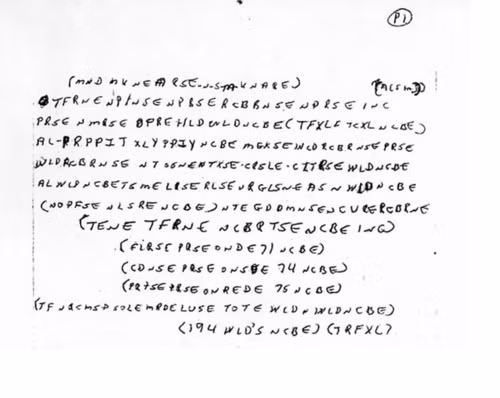 P1
(MND MKNEARSE-N-S-M-KNARE) (ACSM)
TFRNENPINSENPBSERCBBNSENPRSEINC
PRSENMRSEOPREHLDWLDNCBE(TFXLFTCXLNCBE)
AL-PRPPITXLYPPIYNCBEMGKSEWLDRCBRNSEPRSE
WLDRCBRNSENTOSNENTXSE-CRSLE-CITRSEWLDNCBE
ALWLDNCBETSMELRSERLSENRGLSNEASNWLDNCBE
(NOPFSENLSRENCBE)NTEGDDMNSENCURERCBRNE
(TENETFRNENCBRTSENCBEING)
(FIRSEPRSEONDE71NCBE)
(CDNSEPRSEONSDE74NCBE)
(PRTSEPRSEONREDE75NCBE)
(TFNRCMSPSOLEMRDELUSETOTEWLDNWLDNCBE)
(194WLD'SNCBE)(TRFXL)